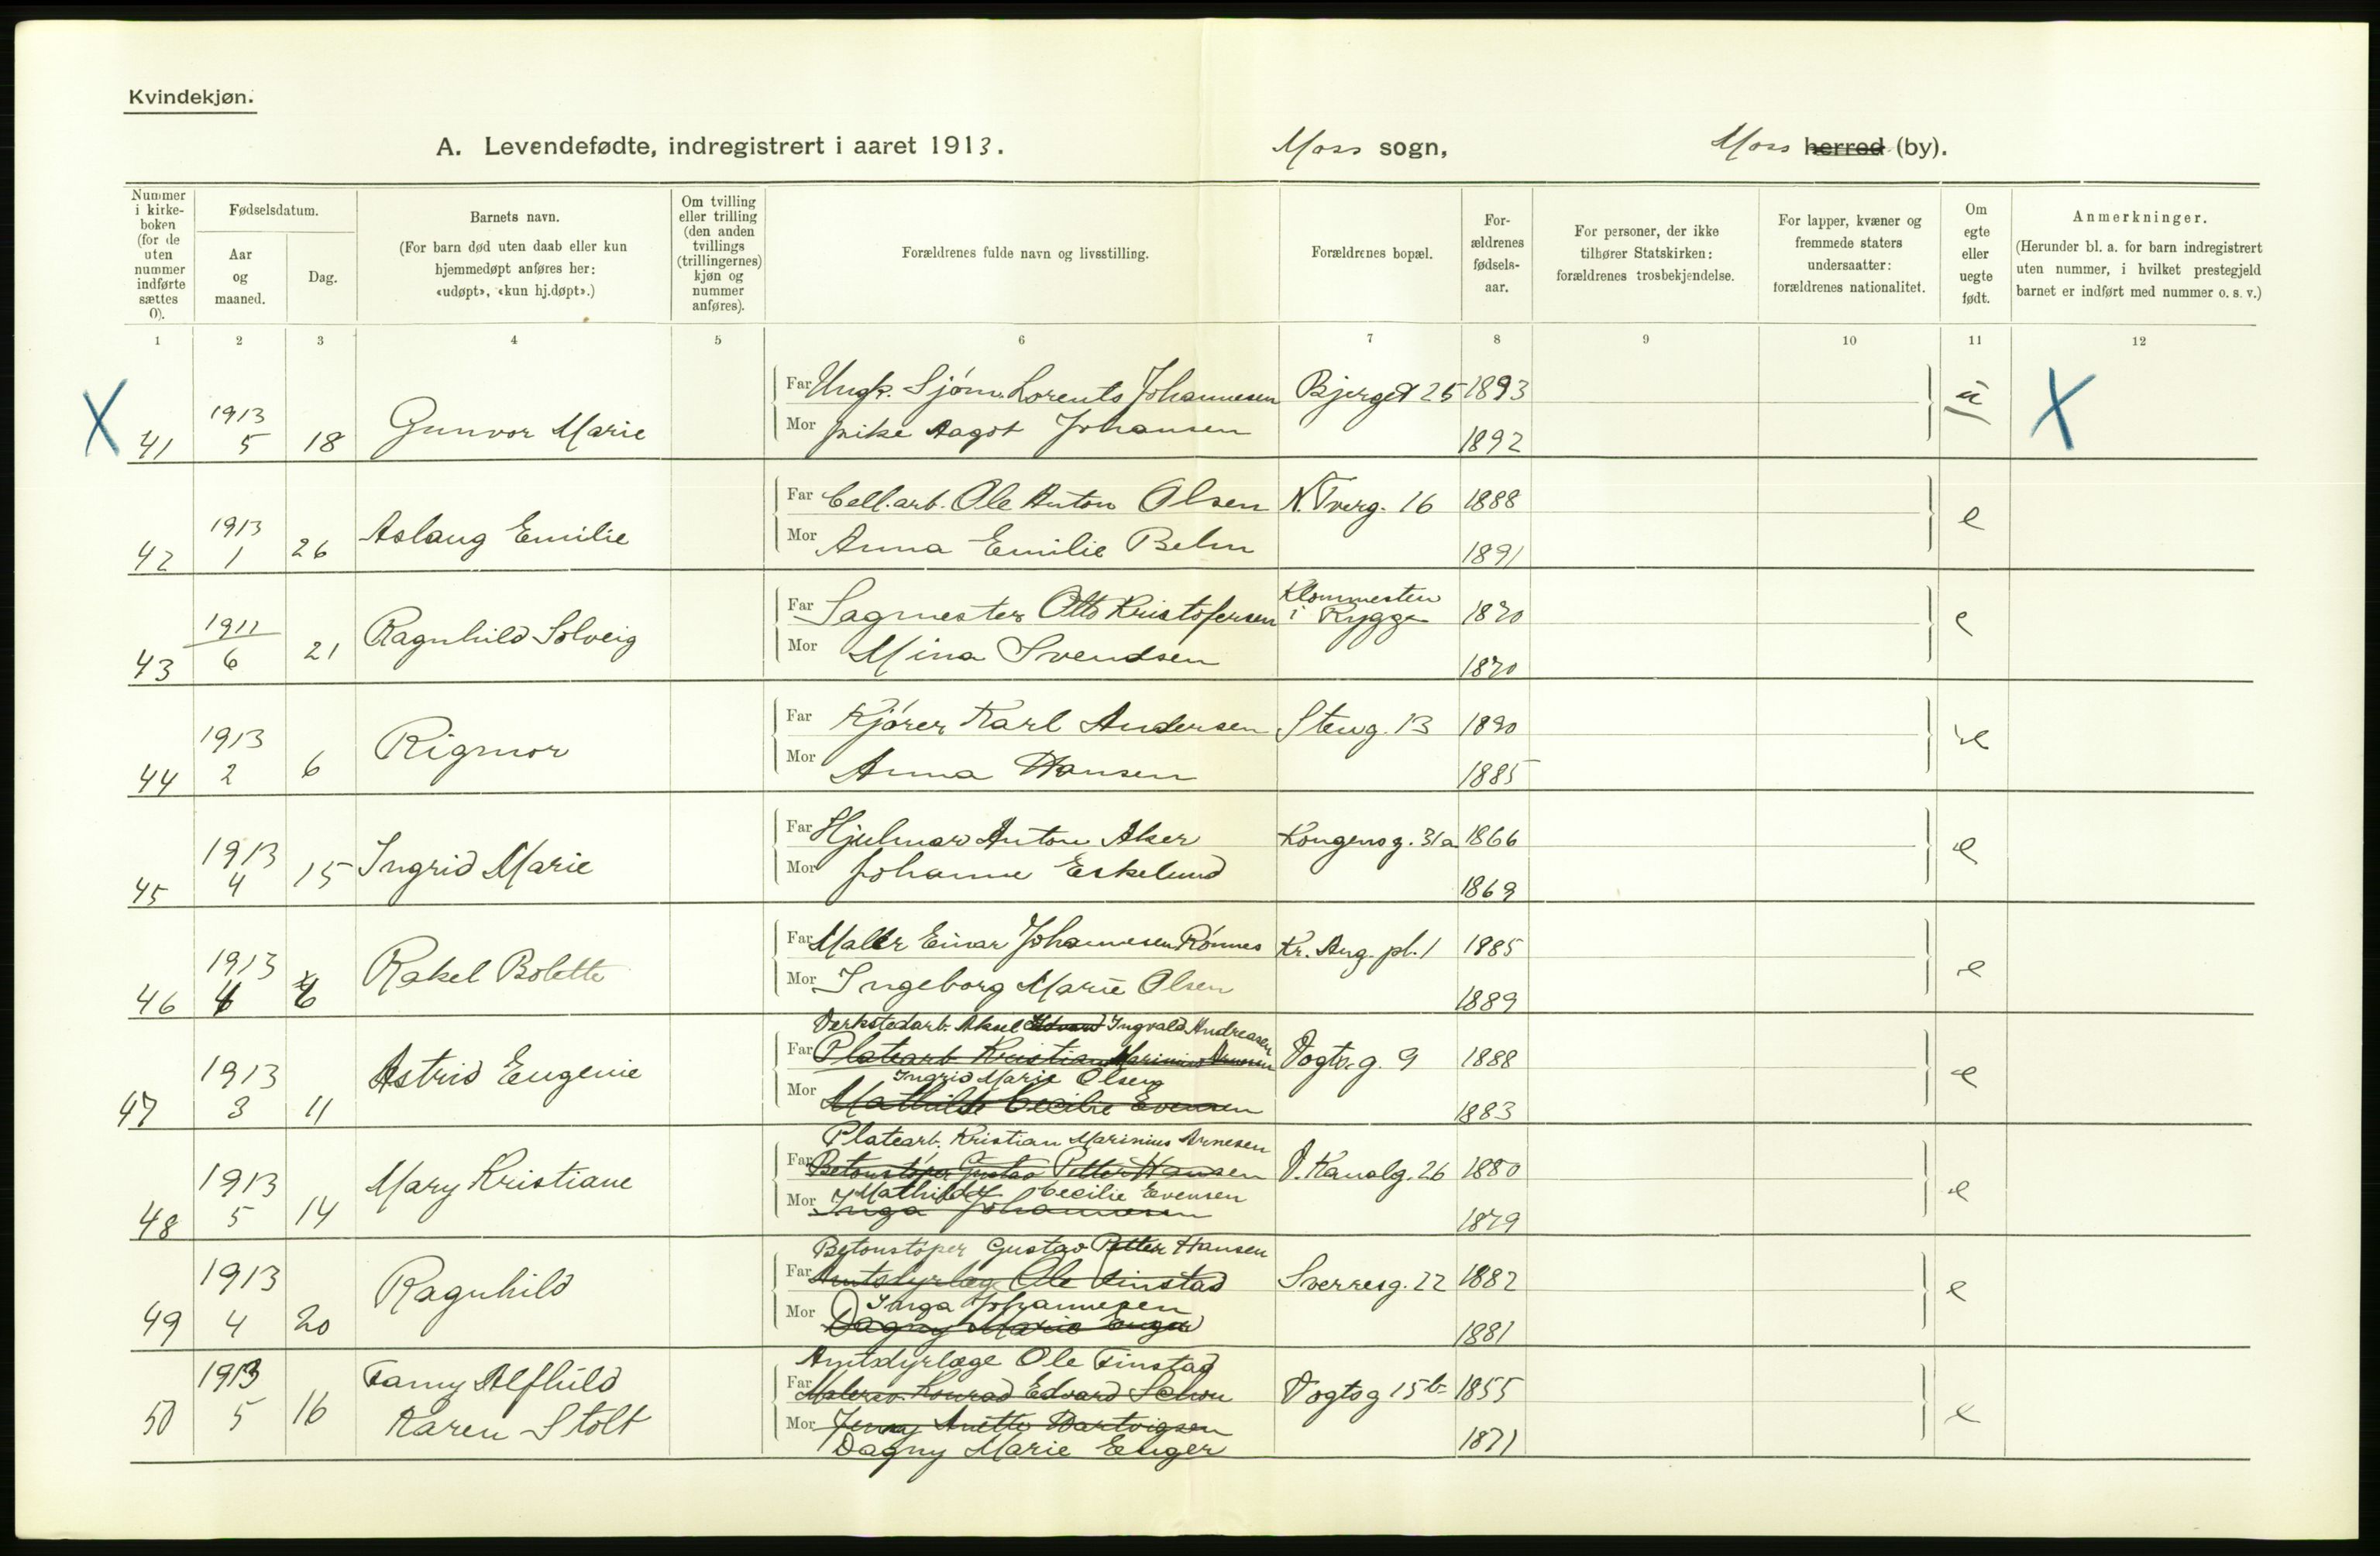 Kvindekjøn.
A. Levendefødte, indregistrert i aaret 1913.
Moss sogn,
Moss herred (by).
Nummer i kirke-boken (for de uten nummer indførte sættes 0).
Fødselsdatum.
Aar og maaned.
Dag.
Barnets navn.
(For barn død uten daab eller kun hjemmedøpt anføres her: «udøpt», «kun hj.døpt».)
Om tvilling eller trilling (den anden tvillings (trillingernes) kjøn og nummer anføres).
Forældrenes fulde navn og livsstilling.
Forældrenes bopæl.
For-ældrenes fødsels-aar.
For personer, der ikke tilhører Statskirken: forældrenes trosbekjendelse.
For lapper, kvæner og fremmede staters undersaatter: forældrenes nationalitet.
Om egte eller uegte født.
Anmerkninger.
(Herunder bl. a. for barn indregistrert uten nummer, i hvilket prestegjeld barnet er indført med nummer o. s. v.)
1 2 3 4 5 6 7 8 9 10 11 12
X 41 1913 5 18 Gunvor Marie
Far Ungk. Sjøm. Lorents Johannesen Bjerget 25 1893 u X
Mor pike Aagot Johansen 1892
42 1913 1 26 Aslaug Emilie
Far Cell.arb. Ole Anton Olsen N. Tverg. 16 1888 e
Mor Anna Emilie Behn 1891
43 1911 6 21 Ragnhild Solveig
Far Sagmester Otto Kristofersen Klommesten i Rygge 1870 e
Mor Mina Svendsen 1870
44 1913 2 6 Rigmor
Far Kjører Karl Andersen Steng. 13 1890 e
Mor Anna Hansen 1885
45 1913 4 15 Ingrid Marie
Far Hjalmar Anton Aker Kongensg. 31a 1866 e
Mor Johanne Eskelund 1869
46 1913 4 6 Rakel Bolette
Far Maler Einar Johannesen Rönnes Kr. Aug. pl. 1 1885 e
Mor Ingeborg Marie Olsen 1889
47 1913 3 11 Astrid Eugenie
Verkstedarb. Aksel Edvard Ingvald Andreasen
Far Platearb Kristian Marinius Arnesen Vogtsg. 9 1888 e
Ingrid Marie Olsen
Mor Mathilde Cecilie Evensen 1883
48 1913 5 14 Mary Kristiane
Platearb. Kristian Marinius Arnesen
Far Betonstøper Gustav Petter Hansen V. Kanalg. 26 1880 e
Mathilde Cecilie Evensen
Mor Inga Johannesen 1879
49 1913 4 20 Ragnhild
Betonstøper Gustav Petter Hansen
Far Amtsdyrlæge Ole Finstad Sverresg. 22 1882 e
Inga Johannesen
Mor Dagny Marie Enger 1881
50 1913 5 16 Fanny Alfhild
Karen Stolt
Amtsdyrlæge Ole Finstad
Far Malersv. Konrad Edvard Schou Vogtsg 15b 1855 e
Mor Jenny Anette Hartvigsen
Dagny Marie Enger 1871